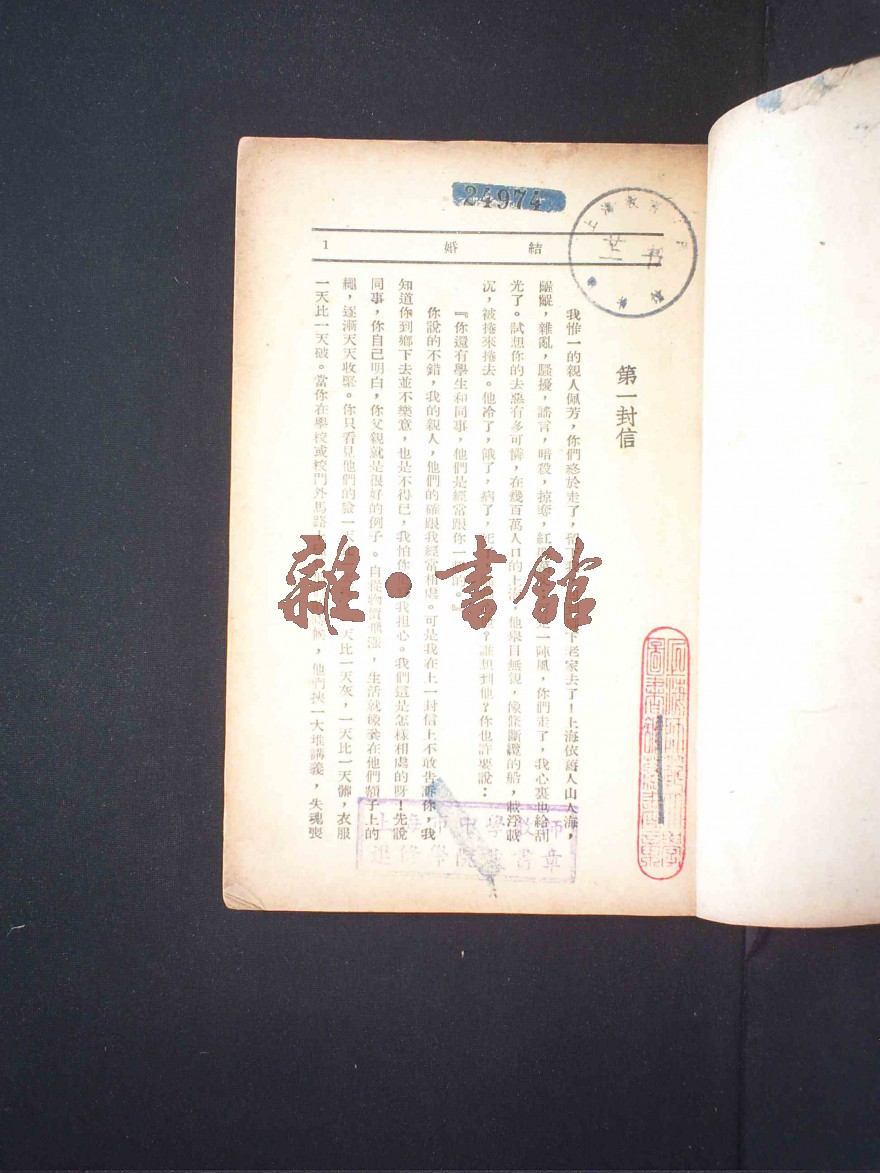 24974
結婚
1
第一封信
我惟一的親人佩芳，你們終於走了，老家去了！上海依舊人山人海，
齷齪，雜亂，騷擾，謠言，暗殺，掠奪，紅一陣風，你們走了，我心裏也給刮
光了。試想你的去惡有多可憐，在幾百萬人口的上海，他舉目無親，像條斷纜的船，載浮載
沉，被捲來捲去。他冷了，餓了，病了，誰想到他？你也許要說：
『你還有學生和同事，他們是經常跟你一的。』
你說的不錯，我的親人，他們的確跟我經常相處。可是我在上一封信上不敢告訴你，我
知道你到鄉下去並不樂意，也是不得已，我怕你我担心。我們這是怎樣相處的呀！先說
同事，你自己明白，你父親就是很好的例子。自從物價飛漲，生活就像套在他們頸子上的
繩，逐漸天天收緊。你只看見他們的臉一天天比一天灰，一天比一天髒，衣服
一天比一天破。當你在學校或校門外馬路上候，他們挾一大堆講義，失魂喪
雜·書館
上海市中學教師
進修學院圖書章